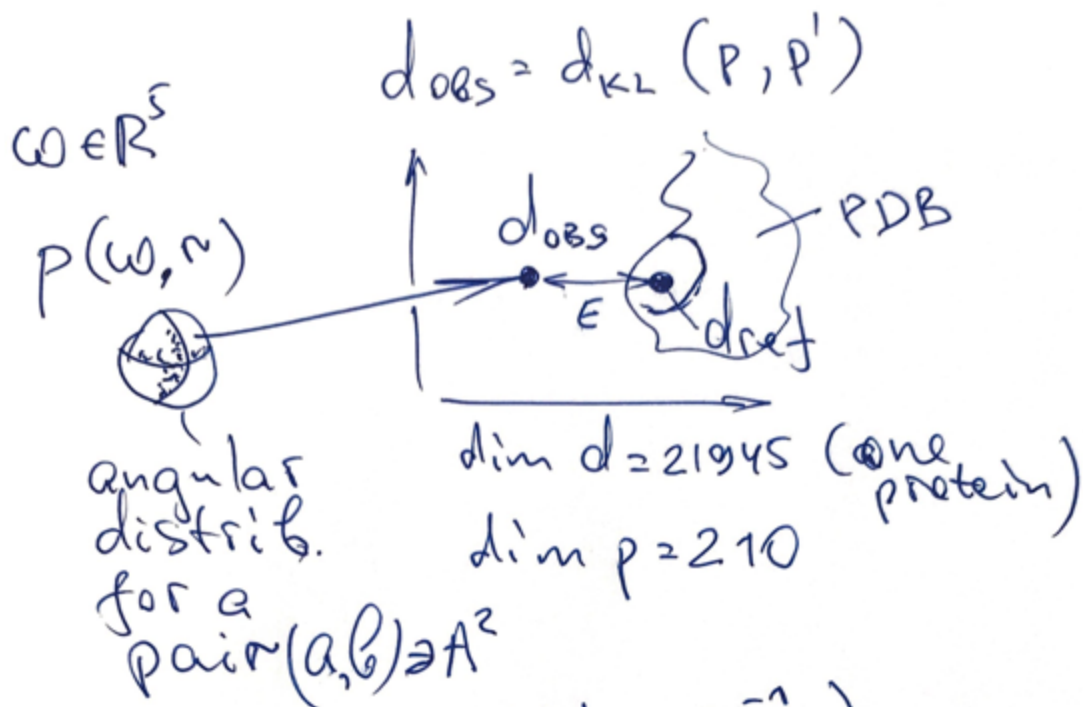 d_OBS = d_KL (P, P')
ω ∈ R^5
p(ω, r)
d_OBS
PDB
E
d_ref
angular
distrib.
for a
pair (a,b) ∋ A²
dim d = 21945 (one
protein)
dim p = 210
-1 )